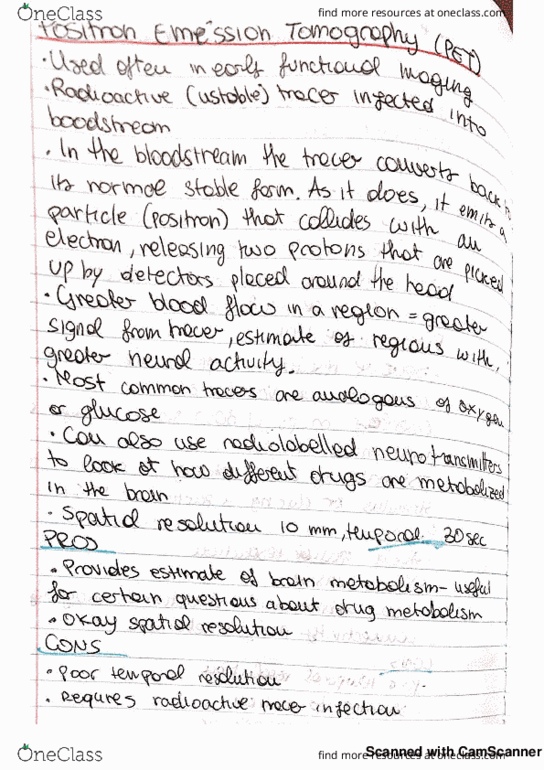 OneClass
find more resources at oneclass.com
Positron Emission Tomography (PET)
• Used often in early functional imaging
• Radioactive (ustable) tracer injected into
boodstream
• In the bloodstream the tracer converts back to
its normal stable form. As it does, it emits a
particle (positron) that collides with an
electron, releasing two protons that are picked
up by detectors placed around the head
• Greater blood flow in a region = greater
signal from tracer, estimate of regions with
greater neural activity.
• Most common tracers are analogous of oxygen
or glucose
• Can also use radiolabelled neurotransmitters
to look at how different drugs are metabolized
in the brain
• Spatial resolution 10 mm, temporal 30sec
PROS
• Provides estimate of brain metabolism - useful
for certain questions about drug metabolism
• Okay spatial resolution
CONS
• Poor temporal resolution
• Requires radioactive tracer injection
OneClass
find more resources at oneclass.com
Scanned with CamScanner